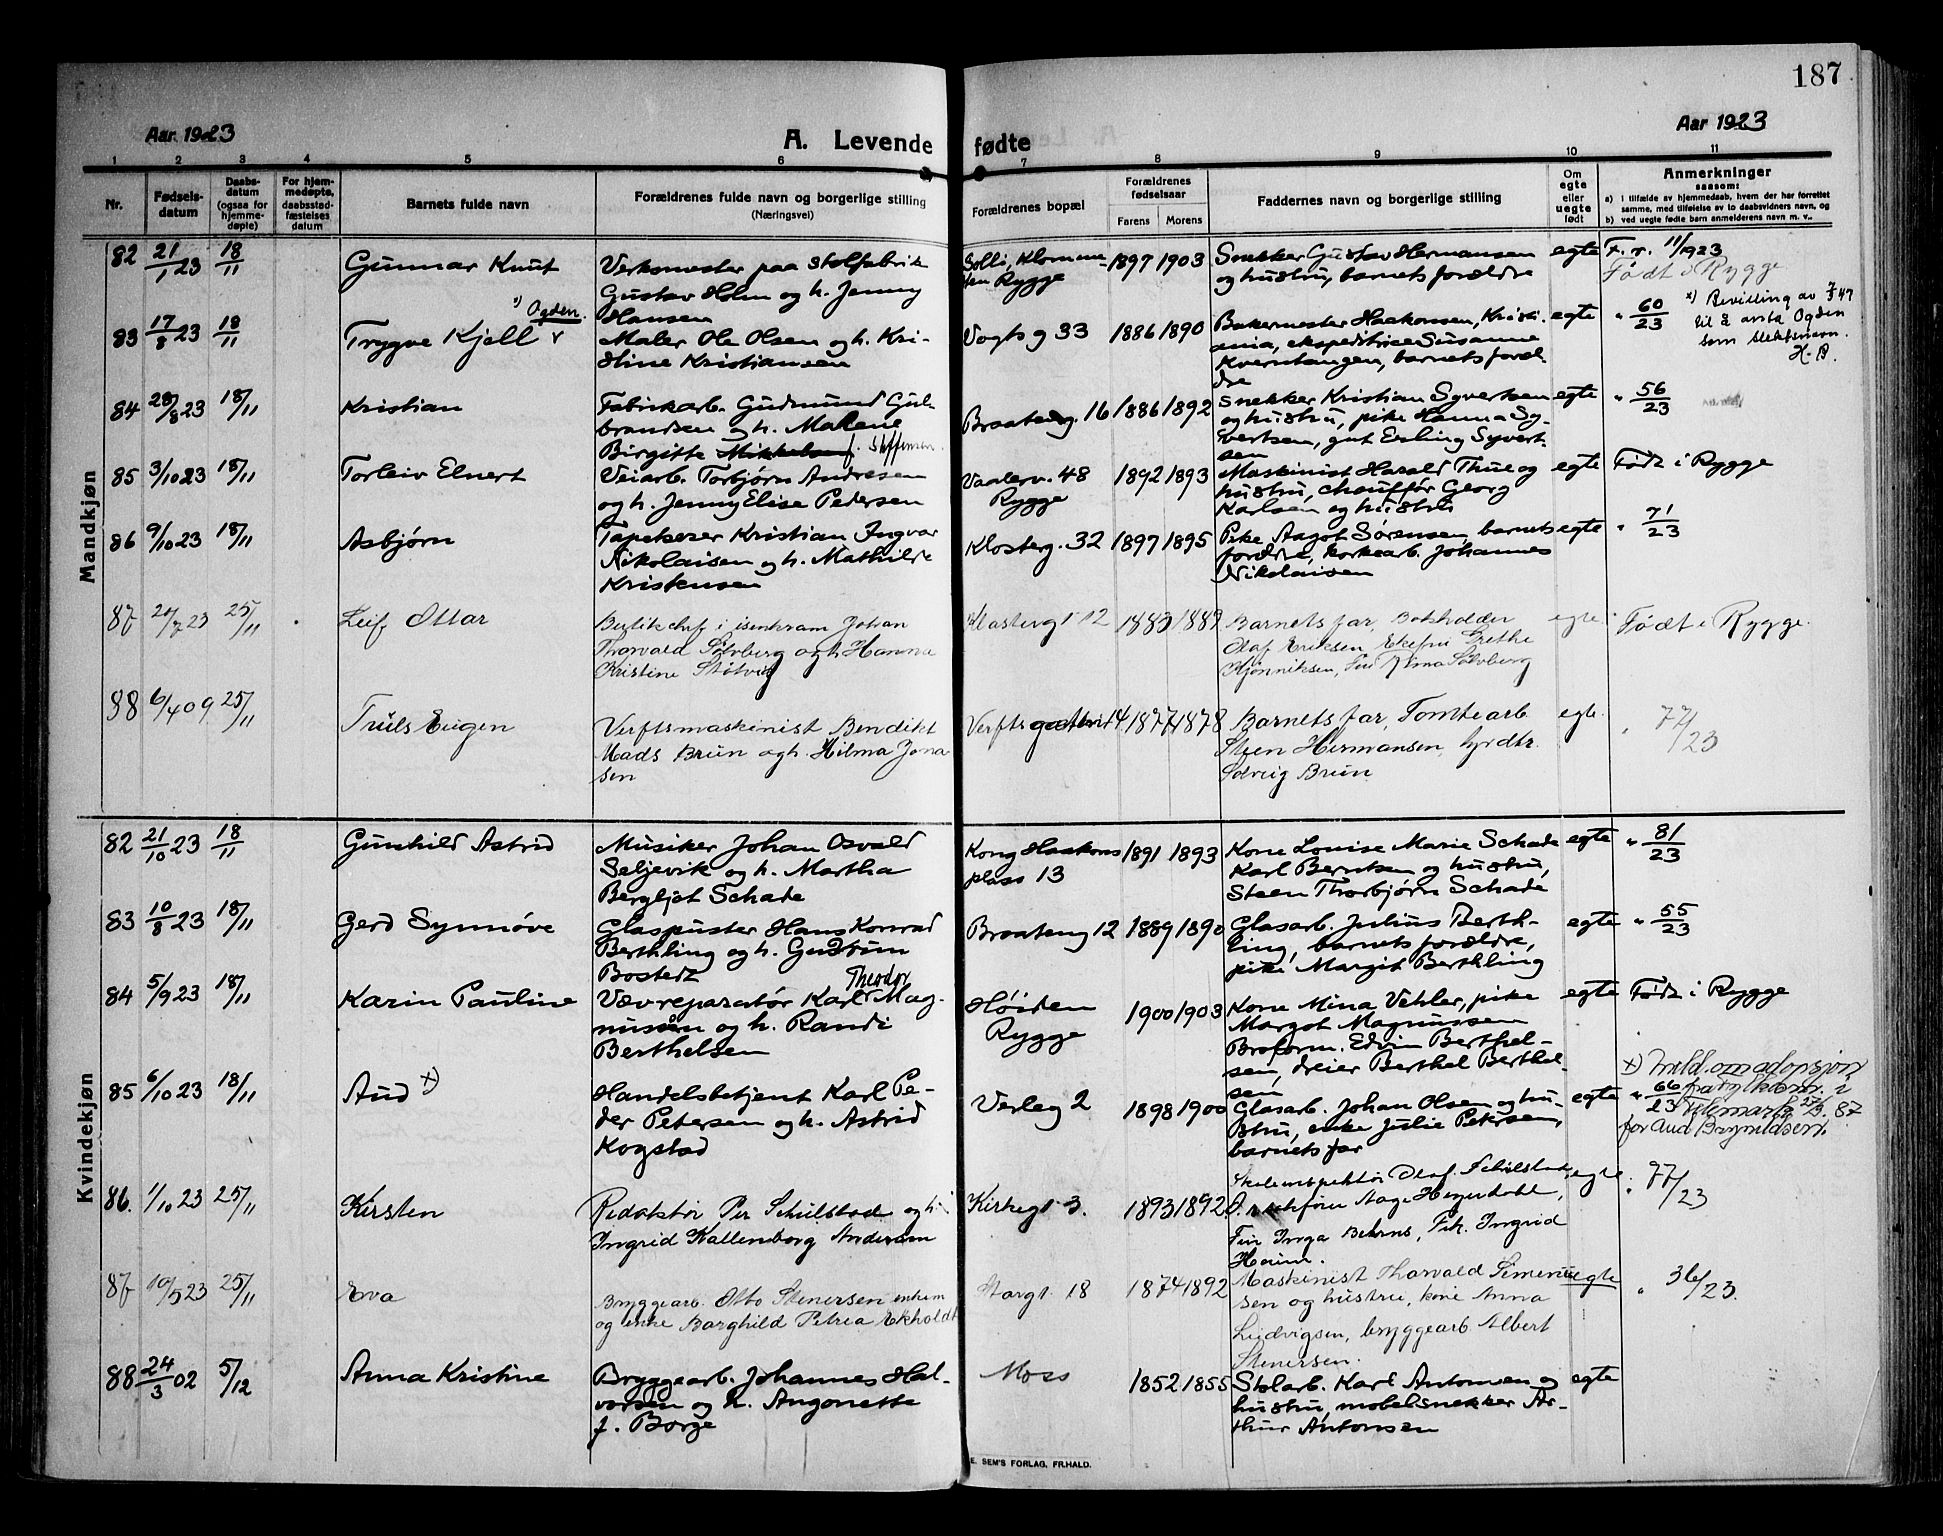 187
Aar 1923
A. Levende fødte
Aar 1923
1 2 3 4 5 6 7 8 9 10 11
Nr.
Fødsels-
datum
Daabs-
datum
(ogsaa for
hjemme-
døpte)
For hjem-
medøpte,
daabsstad-
fæstelses
datum
Barnets fulde navn
Forældrenes fulde navn og borgerlige stilling
(Næringsvei)
Forældrenes bopæl
Forældrenes
fødselsaar
Farens Morens
Faddernes navn og borgerlige stilling
Om
egte
eller
uegte
født
Anmerkninger
saasom:
a) i tilfælde av hjemmedaab, hvem der har forrettet
samme, med tilføielse av to daabsvidners navn, og
b) ved uegte fødte barn anmelderens navn m. v..
Mandkjøn
82 21/1 23 18/11 Gunnar Knut
Verksmester paa stolfabrik
Gustav Holm og h. Jenny
Hansen
Solli,
Rygge
1897 1903
Snekker Gustav Hermansen
og hustru, barnets forældre
egte
F. r. 11/1923
Født i Rygge
83 17/8 23 18/11 Trygve Kjell
Ogden
Maler Ole Olsen og h. Kri-
stine Kristiansen
Vogts g 33
1886 1890
Bakermester Haakonsen, Kristi-
ania, ekspeditrise Susanne
Kverntangen, barnets foræl-
dre
egte
" 60/23
x) Bevilling av 7/5 47
til å anta Ogden
som slektsnavn.
H. B.
84 28/8 23 18/11 Kristian
Fabrikarb. Gudmund Gul-
brandsen og h. Malene
Birgitte Mikkelsen f. Steffensen
Braateng. 16
1886 1892
Snekker Kristian Syvertsen
og hustru, pike Hanna Sy-
vertsen, gut Erling Syvert-
sen
egte
" 56/23
85 3/10 23 18/11 Torleiv Elnert
Veiarb. Torbjørn Andresen
og h. Jenny Elise Pedersen
Vaalerv. 48
Rygge
1892 1893
Maskinist Harald Thue og
hustru, chauffør Georg
Karlsen og hustru
egte
Født i Rygge
86 9/10 23 18/11 Asbjørn
Tapetserer Kristian Ingvar
Nikolaisen og h. Mathilde
Kristensen
Klosterg. 32
1897 1895
Pike Aagot Sørensen, barnets
forældre, korkearb. Johannes
Nikolaisen
egte
" 71/23
87 20/7 23 25/11 Leif Ottar
i isenkram Johan
Thorvald Sølvberg og h. Hanna
Kristine Støtvig
Klostergt 12
1883 1889
Barnets far, Bokholder
Olaf Eriksen, Grethe
Hjønniksen, Alma Sølvberg
egte
Født i Rygge.
88 6/4 09 25/11 Truls Eugen
Verftsmaskinist Bendikt
Mads Brun og h. Hilma Jona-
sen
1877 1878
Barnets far, Tomtearb
Steen Hermansen,
Solveig Brun
egte
" 77/23
Kvindekjøn
82 21/10 23 18/11 Gunhild Astrid
Musiker Johan Osvald
Seljevik og h. Martha
Bergljot Schade
Kong Haakons
plass 13
1891 1893
Kone Louise Marie Schade
Karl Berntsen og hustru,
Steen Thorbjørn Schade
egte
" 81/23
83 10/8 23 18/11 Gerd Synnøve
Glaspuster Hans Konrad
Berthling og h. Gudrun
Bosterz
Braateng 12
1889 1890
Glasarb. Julius Berth-
ling, barnets forældre,
pike Margit Berthling
egte
" 55/23
84 5/9 23 18/11 Karin Pauline
Theodor
Vævreparatør Karl Mag-
nussen og h. Randi
Berthelsen
Høiden
Rygge
1900 1903
Kone Mina Vehler, pike
Margot Magnussen
Broform. Edvin Berthel-
sen, dreier Berthel Berthel-
sen
egte
Født i Rygge
85 6/10 23 18/11 Aud x)
Handelsbetjent Karl Pe-
der Petersen og h. Astrid
Kogstad
Verleg 2
1898 1900
Glasarb. Johan Olsen og hu-
stru, enke Julie Petersen,
barnets far
egte
" 66/23
x) Meld. om adopsjon
fra fylkesm. i
Telemark 27/3. 87
for Aud Brynildsen.
86. 1/10 23 25/11 Kirsten
Redaktør Per Schulstad og h.
Ingrid Kallenborg Andersen
Kirkegt 3.
1893 1892
Skoleinspektør Olaf Schulstad,
Aage Heyerdahl,
Fru Inga Behrns, Frk. Ingrid
Heium.
egte
" 77/23
87 10/5 23 25/11 Eva
Bryggearb. Otto Stenersen
og enke Borghild Petrea Ekholdt
Storgt. 18
1874 1892
Maskinist Thorvald Simen-
sen og hustru, kone Anna
Ludvigsen, bryggearb Albert
Stenersen.
uegte
" 36/23.
88 24/3 02 5/12 Anna Kristine
Bryggearb. Johannes Hal-
vorsen og h. Angonette
f. Borge
Moss
1852 1855
Stolarb. Karl Antonsen og
hustru, møbelsnekker Ar-
thur Antonsen
egte
E. SEM'S FORLAG, FR.HALD.